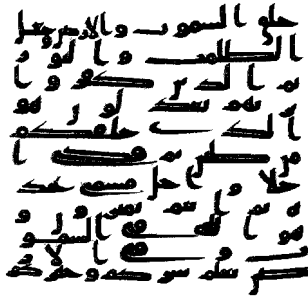 خلق السموت والارض وجعل
الظلمت والنور
ثم الذين كفروا
بربهم يعدلون هو
الذي خلقكم
من طين ثم قضى ا
جلا واجل مسمى عنده
ثم انتم تمترون و
هو الله في السمو
ت وفي الا
رض يعلم سركم وجهركم